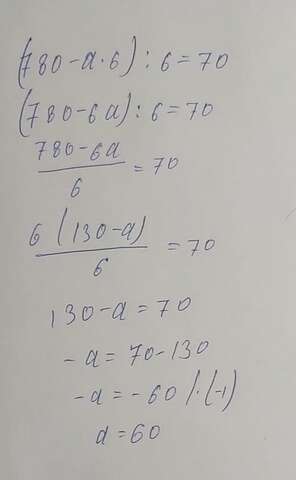 (780-a·6):6=70
(780-6a):6=70
780-6a
6
=70
6(130-a)
6
=70
130-a=70
-a=70-130
-a=-60 /·(-1)
a=60